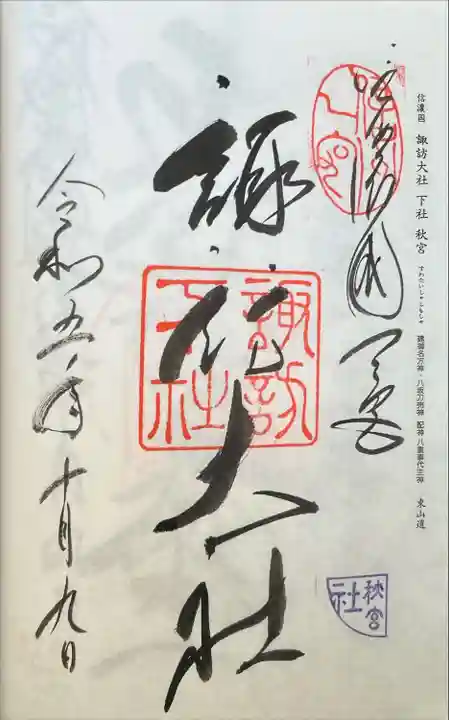 信濃国 諏訪大社 下社 秋宮 すわたいしゃしもしゃ 建御名方神・八坂刀売神 配神 八重事代主神 東山道
信濃国一宮
秋宮
社
諏訪大社
諏訪
下社
令和五年十月九日